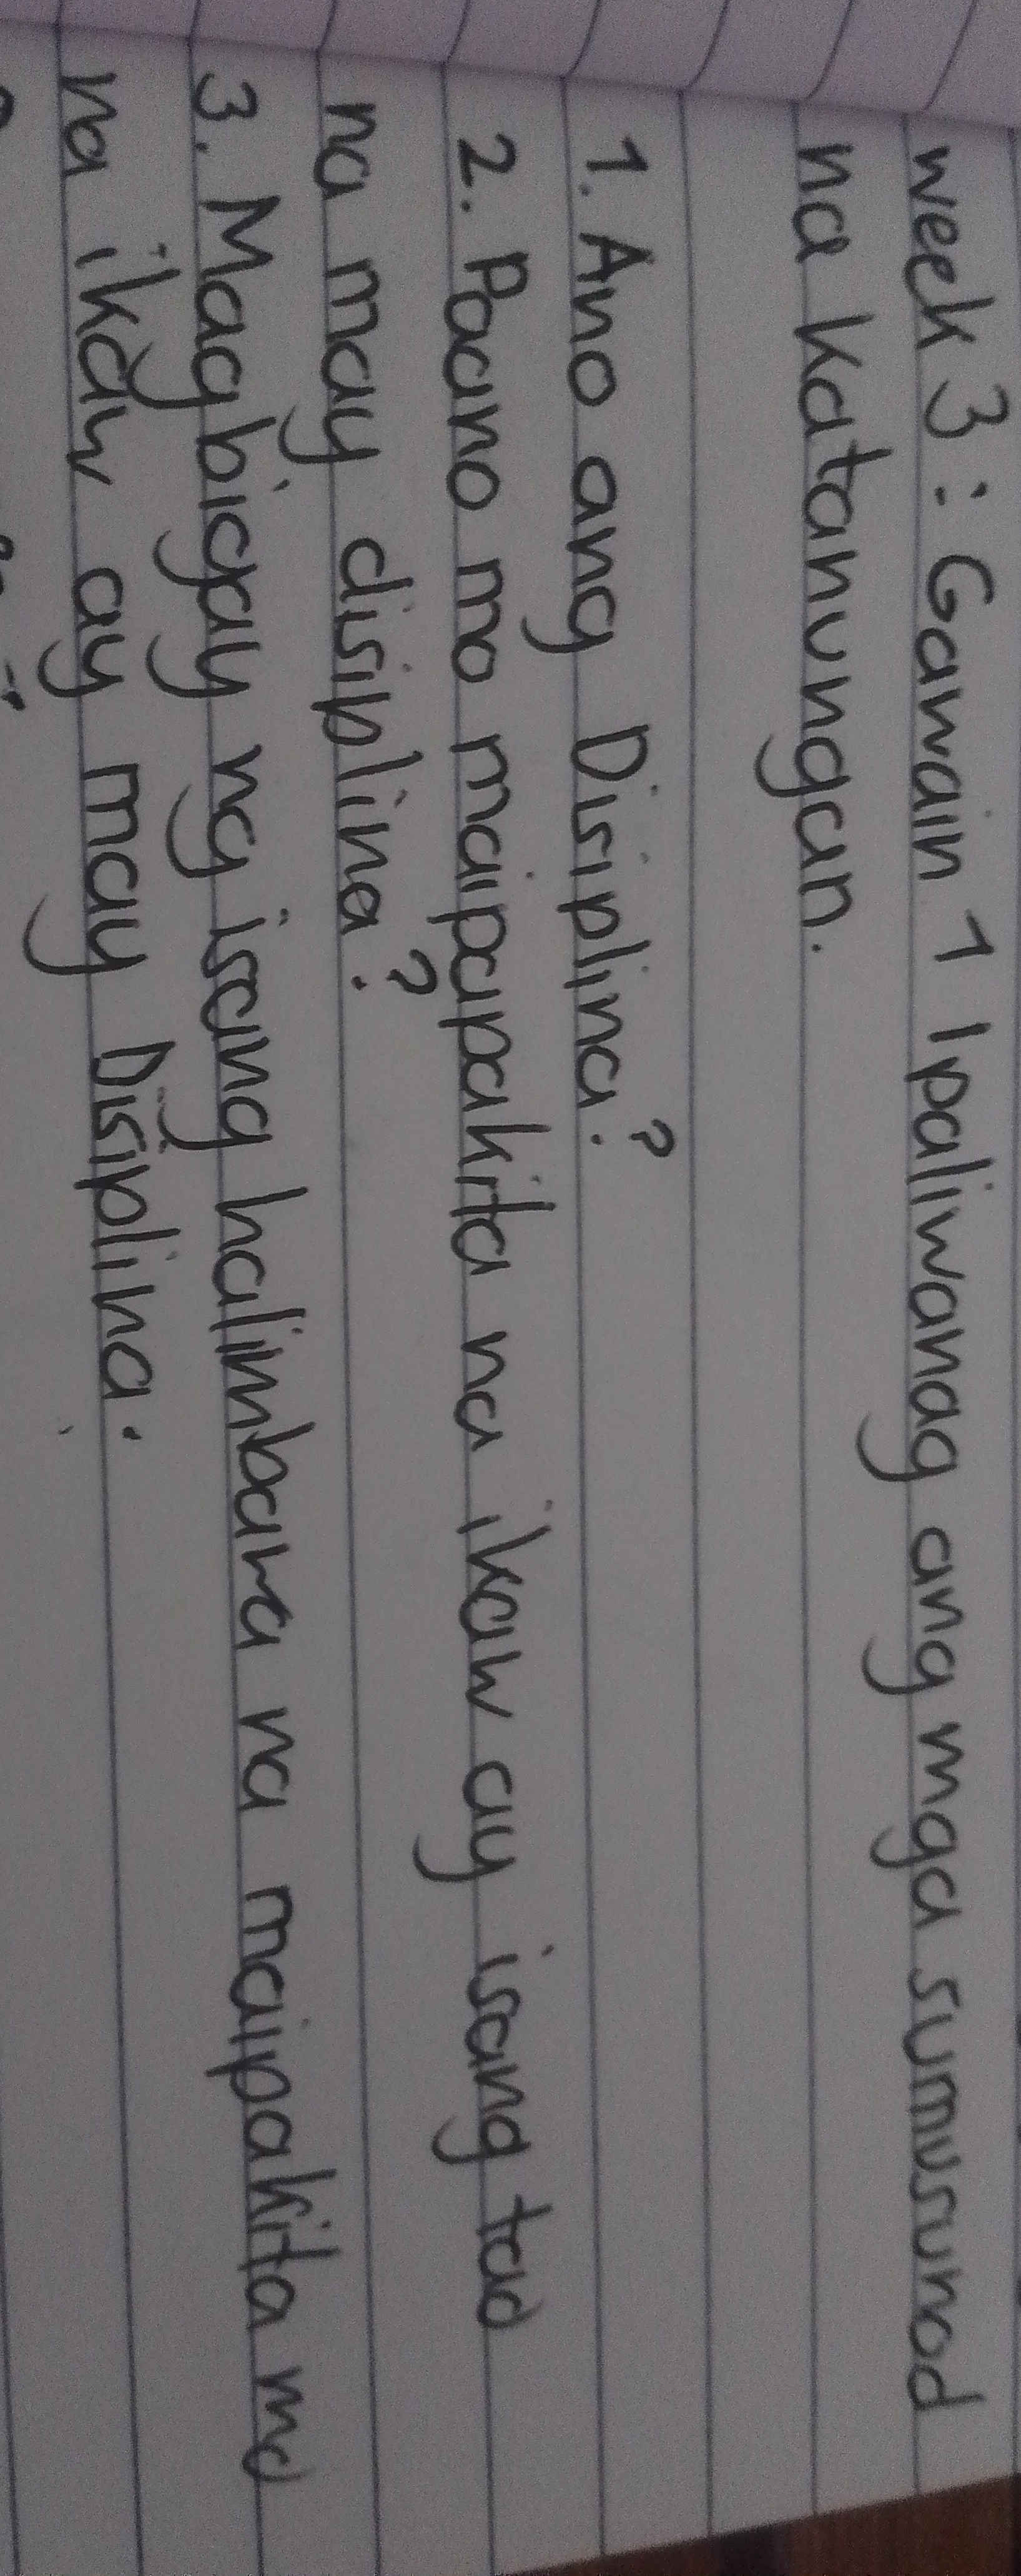 week 3 : Gawain 1 Ipaliwanag ang mga sumusunod
na katanungan.
1. Ano ang Disiplina?
2. Paano mo maipapakita na ikaw ay isang tao
na may disiplina?
3. Magbigay ng isang halimbawa na maipakita mo
na ikaw ay may Disiplina.